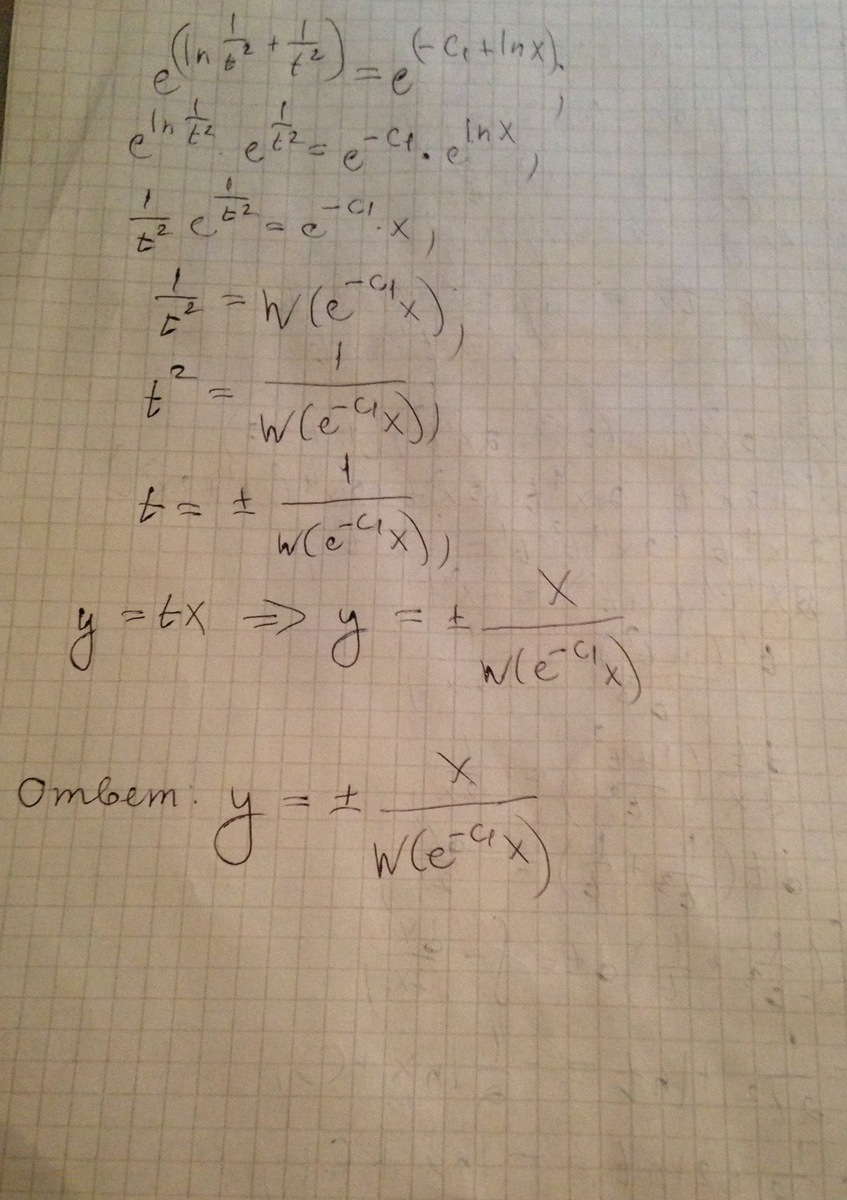 e^(ln 1/t² + 1/t²) = e^(-C₁ + ln x);
e^(ln 1/t²) · e^(1/t²) = e^(-C₁) · e^(ln x),
1/t² e^(1/t²) = e^(-C₁) · x,
1/t² = W(e^(-C₁) x),
t² = 1/W(e^(-C₁) x),
t = ± 1/W(e^(-C₁) x),
y = tx => y = ± x/W(e^(-C₁) x)
Ответ: y = ± x/W(e^(-C₁) x)